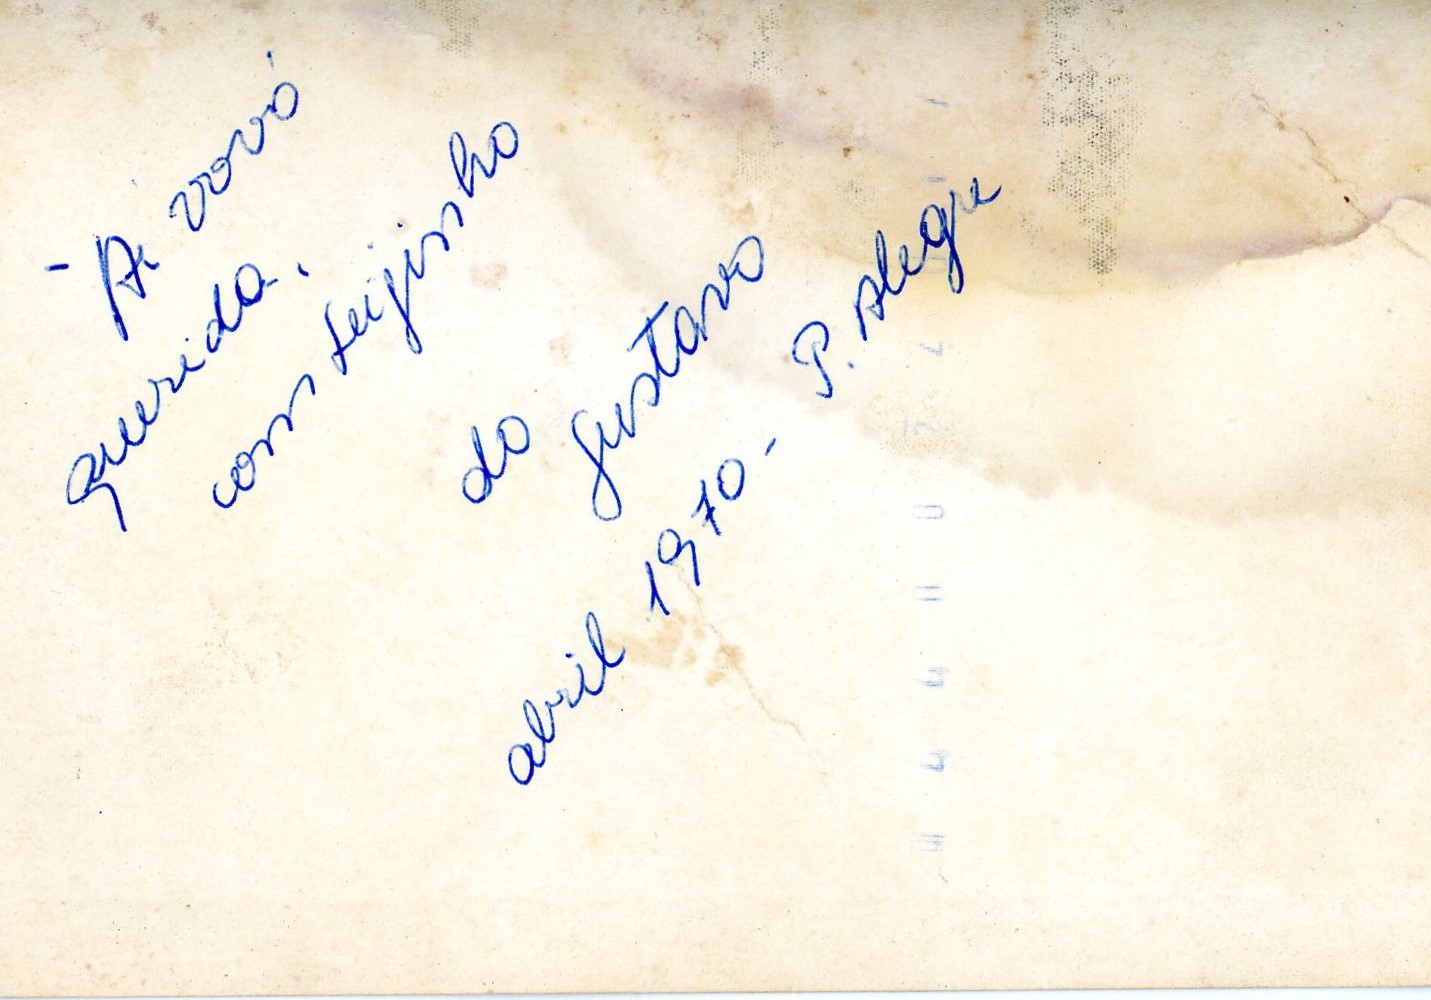 - À vovó
querida,
com beijinho
do Gustavo
abril 1970 - P. Alegre